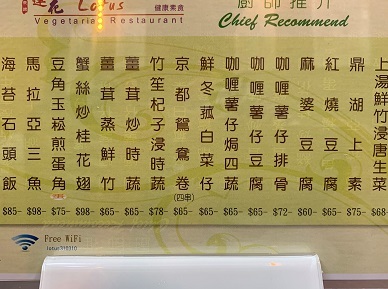 蓮花 Lotus 健康素食
Vegetarian Restaurant
廚師推介
Chief Recommend
上湯鮮竹浸唐生菜 $68-
鼎湖上素 $75-
紅燒豆腐 $65-
麻婆豆腐 $60-
咖喱薯仔排骨 $72-
咖喱薯仔豆腐 $65-
咖喱薯仔焗四蔬 $65-
鮮冬菰白菜仔 $65-
京都鴛鴦卷 (四串) $65-
竹笙杞子浸時蔬 $78-
薑茸炒時蔬 $65-
薑茸蒸鮮竹 $65-
蟹絲炒桂花翅 $98-
豆角玉崧煎蛋角 $75-
馬拉亞三魚 $98-
海苔石頭飯 $85-
Free WiFi